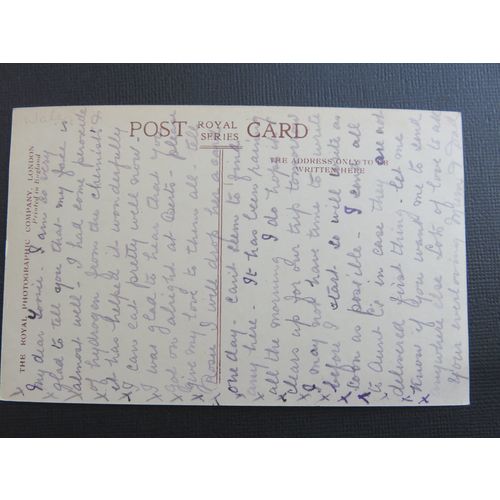 POST ROYAL SERIES CARD
THE ADDRESS ONLY TO BE
WRITTEN HERE
THE ROYAL PHOTOGRAPHIC COMPANY, LONDON
Printed in England
My dear I am so very
glad to tell you that my face is
almost well - I had some peroxide
of hydrogen from the chemists &
it has helped it wonderfully
I can eat pretty well now -
I was glad to hear that you
got on alright at please
give my love to them all - tell
Rose I will drop her a
one day - can't seem to find
any here. It has been raining
all the morning I do hope it
clears up for our trip tomorrow
I may not have time to write
before I start so will write as
soon as possible. I send all
to Aunt in case they are not
delivered first thing. Let me
know if you want me to send
anywhere else Lots of love to all
Your Mum & Dad
x x x x x x x x x x x x x x x x x x x x